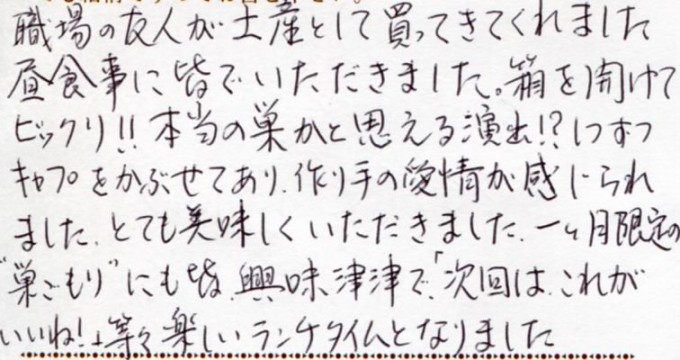 職場の友人がお土産として買ってきてくれました
昼食事に皆でいただきました。箱を開けて
ビックリ!!本当の巣かと思える演出!?1つずつ
キャップをかぶせてあり、作り手の愛情が感じられ
ました、とても美味しくいただきました、一ヶ月限定の
"巣ごもり"にも皆、興味津津で、「次回は、これが
いいね!」等々楽しいランチタイムとなりました